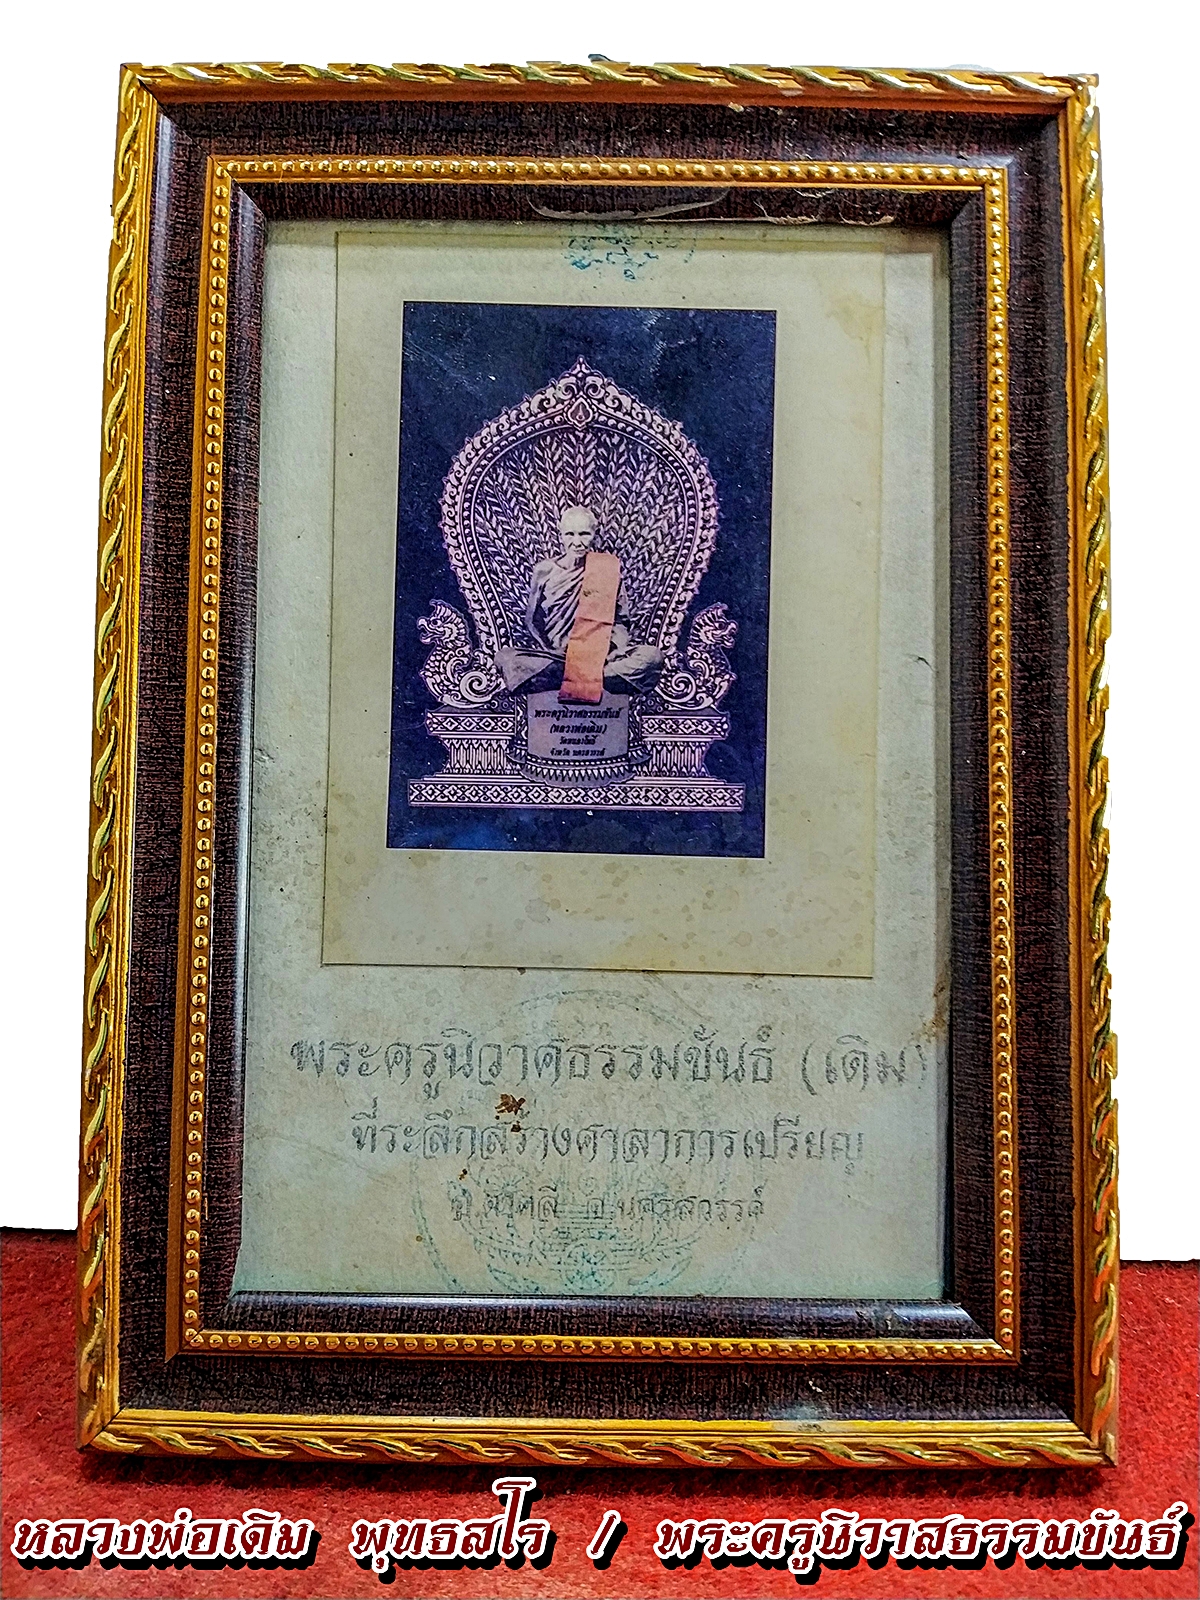 พระครูนิวาศธรรมขันธ์
(หลวงพ่อเดิม)
วัดหนองโพธิ์
จังหวัด นครสวรรค์
พระครูนิวาศธรรมขันธ์ (เดิม)
ที่ระลึกสร้างศาลาการเปรียญ
อ.ตาคลี จ.นครสวรรค์
หลวงพ่อเดิม พุทธสโร / พระครูนิวาสธรรมขันธ์